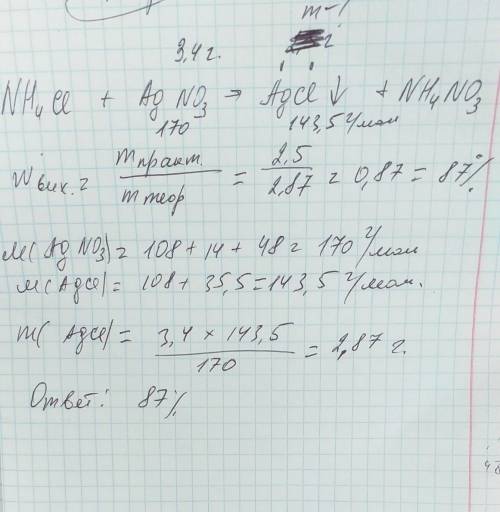 m-?
3,4 г.
NH4Cl + AgNO3 → AgCl↓ + NH4NO3
170 143,5 г/моль
Wвих. = mпракт. / mтеор = 2,5 / 2,87 = 0,87 = 87%
M(AgNO3) = 108 + 14 + 48 = 170 г/моль
M(AgCl) = 108 + 35,5 = 143,5 г/моль.
m(AgCl) = 3,4 × 143,5 / 170 = 2,87 г.
Ответ: 87%